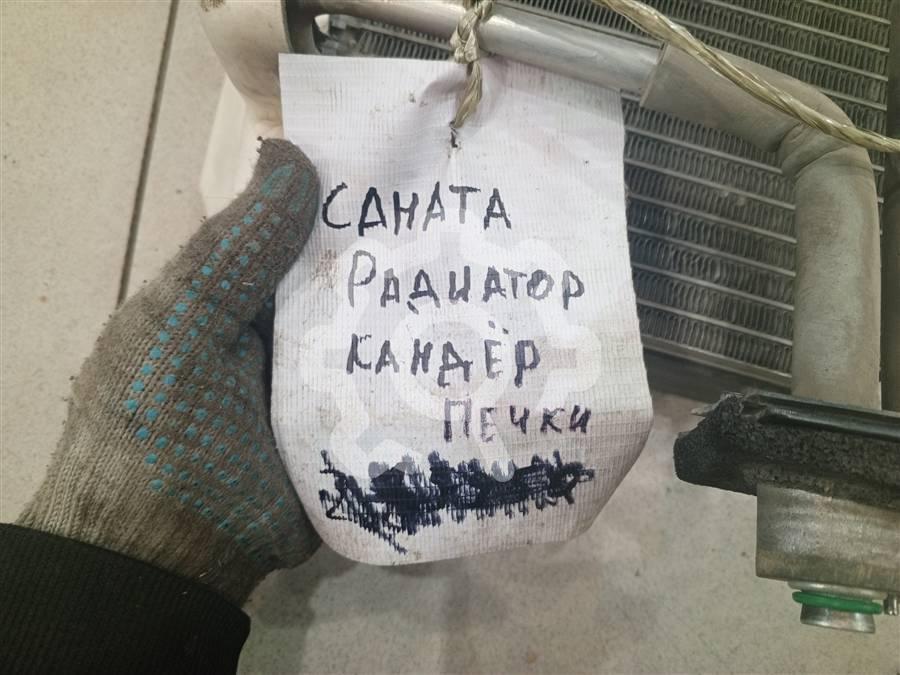 САНАТА
РАДИАТОР
КАНДЁР
ПЕЧКИ